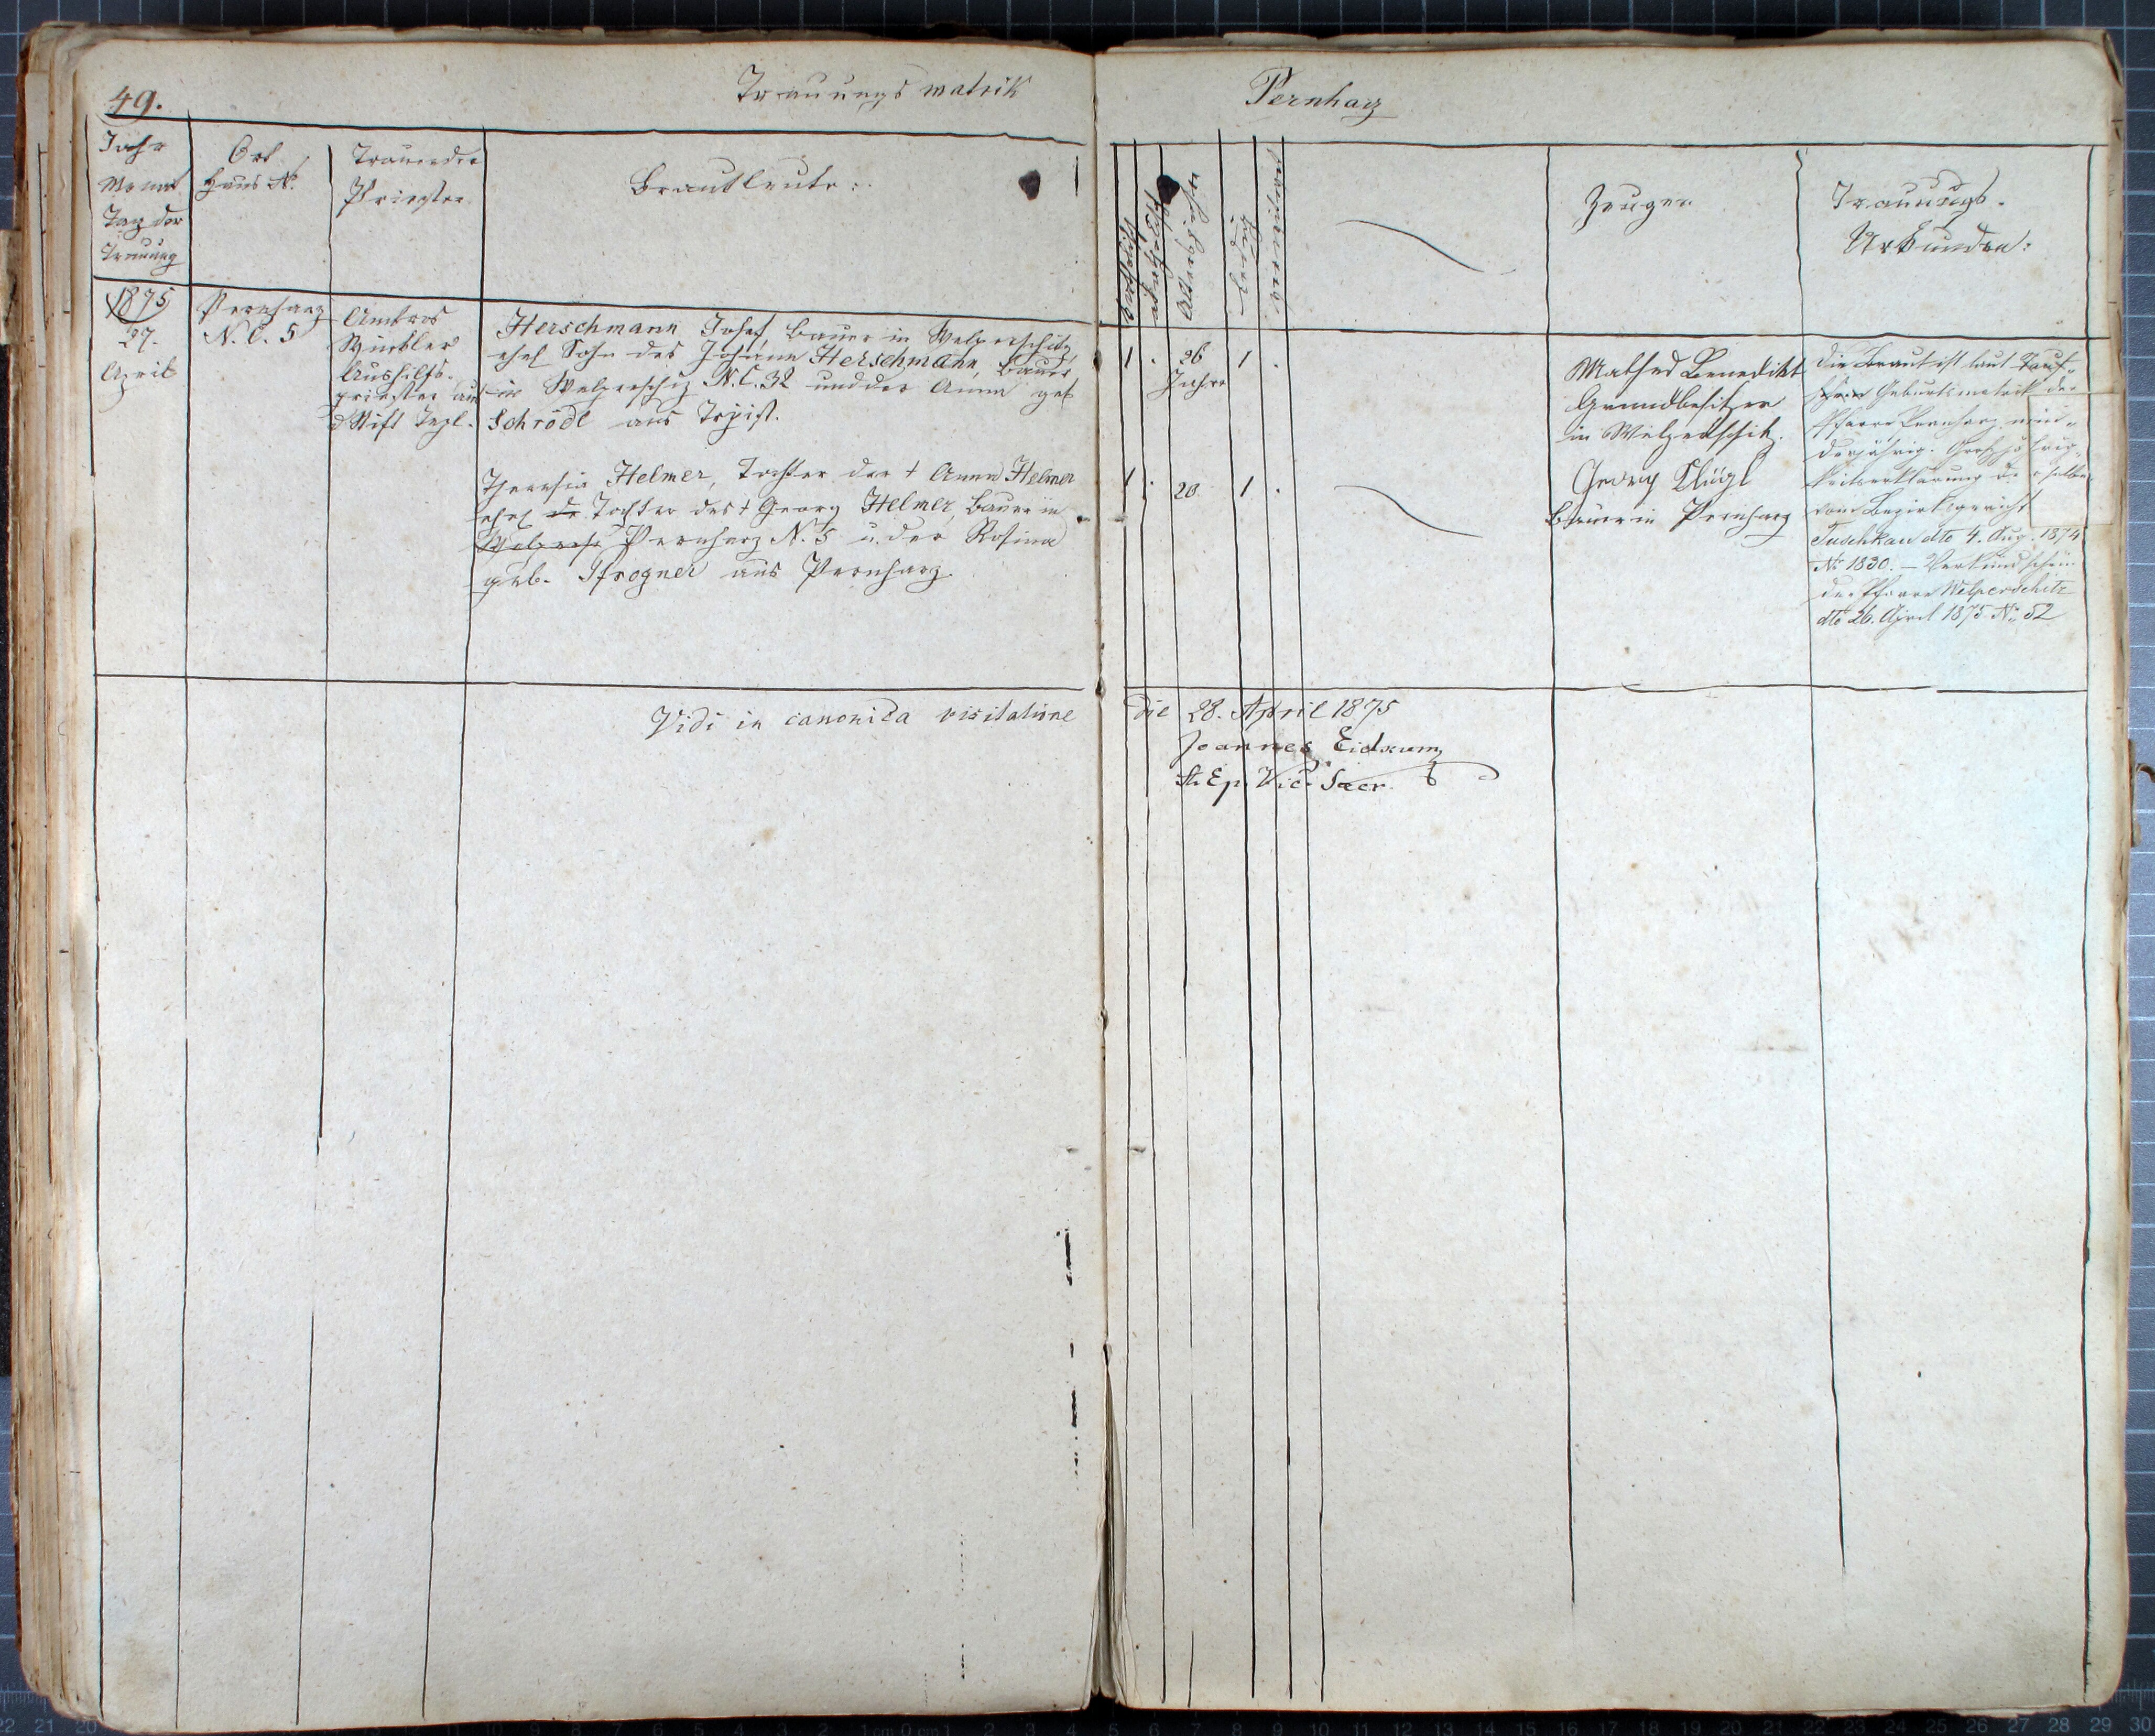 49.
Trauungsmatrik
Pernharz
Jahr
Monat
Tag der
Trauung
Ort
Haus N.
Trauender
Priester
Brautleute:
katholisch
akatholisch
Altersjahre
ledig
verwitwet
Zeugen
Trauungs-
Urkunden:
1875
27.
April
Pernharz
N.C. 5
Ambros
Aushilfs-
priester aus
d Stift Tepl.
Herschmann Josef, Bauer in Welperschitz,
ehel Sohn des Johann Herschmann, Bauer
in Welperschiz N.C. 32 und der Anna geb
Schrödl aus Trpist.
Theresia Helmer, Tochter der † Anna Helmer
ehel de Tochter des † Georg Helmer, Bauer in
Welpersch Pernharz N. 5 u. der Rosina
geb. Pfrogner aus Pernharz.
1 . 26 1 .
Jahre
1 . 20 1 .
Mathes Benedikt
Grundbesitzer
in Welperschitz.
Georg Klügl
Bauer in Pernharz
Die Braut ist laut Tauf-
Geburtsmatrik der
Pfarre Pernharz min-
derjährig. Großjährig-
keitserklärung derselben
vom Bezirksgericht
Tuschkau dto 4. Aug. 1874
No 1830. – Verkundschein
der Pfarre Welperschitz
dto 26. April 1875 No 52
Vidi in canonica visitatione
die 28. April 1875
Joannes
Ep. Vic. Secr.